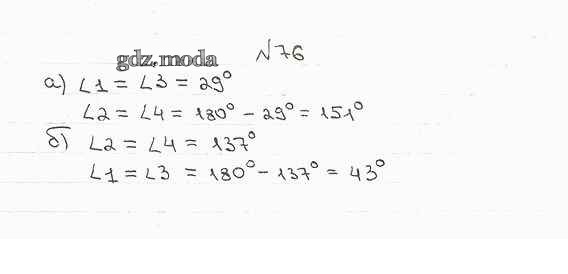 gdz.moda №76
а) ∠1 = ∠3 = 29°
∠2 = ∠4 = 180° - 29° = 151°
б) ∠2 = ∠4 = 137°
∠1 = ∠3 = 180° - 137° = 43°